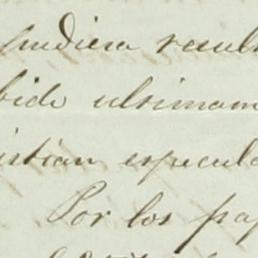 pudiera result
bido ultimam
istian especula
Por los pap